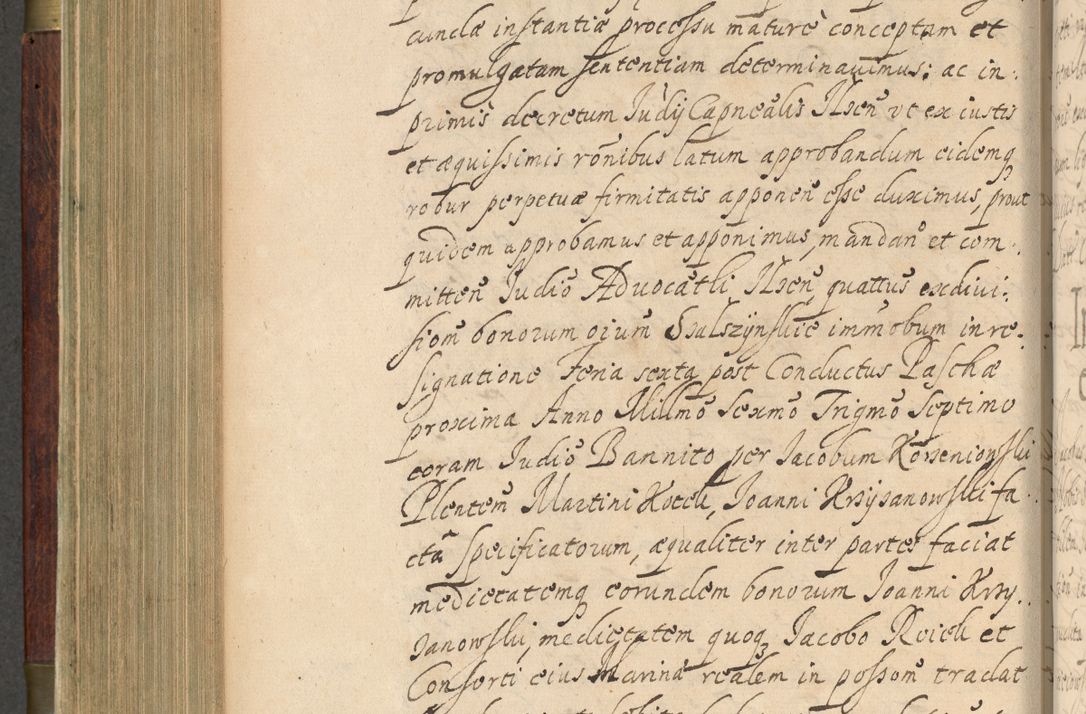 cunctæ instantiæ processu maturè conceptam et
promulgatam sententiam determinauimus: ac in-
primis decretum Judij Capnealis Ilsen̄ vt ex iustis
et æquissimis rōnibus latum approbandum eidemq
robur perpetuæ firmitatis apponen̄ esse duximus, prout
quidem approbamus et apponimus, mandan̄ et com-
mitten̄ Judiō Aduocātli Ilsen̄ quattūs ex diui-
siom̄ bonorum oium̄ immobum in re-
signatione Feria sexta post Conductus Paschæ
proxima Anno Millmō Sexmō Trigmō Septimo
coram Judiō Bannito per Jacobum Korzeniowski
Plentem̄ Martini Koteli, Joanni Krzyzanowski fa-
ctā specificatorum, æqualiter inter partes faciat
medietatemq eorundem bonorum Joanni Krzy-
zanowski, medietatem quoq Jacobo et
Consorti eius Marina reālem in possom̄ tradat